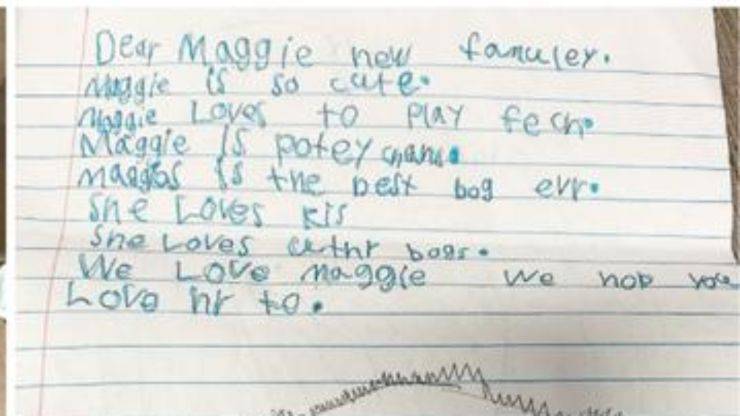 Dear Maggie new famuley.
Maggie is so cute.
Maggie Loves to PLAY fech.
Maggie Is potey chand.
Maggos is the best bog err.
She Loves kis
She Loves outhr bogs.
We Love maggie we hop you
Love hr to.